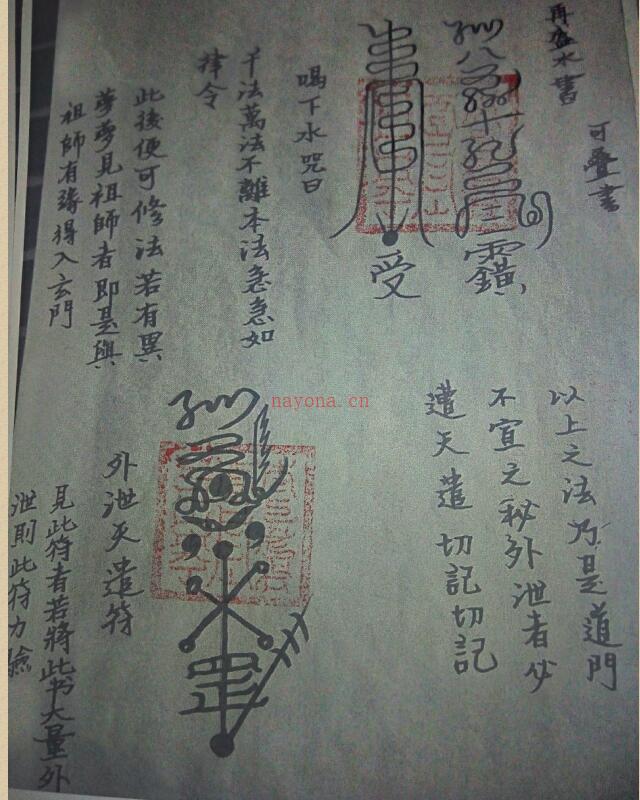 再盔水書
可疊書
靈
受
喝下水咒曰
千法萬法不離本法急急如
律令
此後便可修法若有異
夢夢見祖師者即是與
祖師有緣得入玄門
以上之法乃是道門
不宣之秘外泄者必
遭天遣切記切記
外泄天遣符
見此符者若將此书大量外
泄則此符力驗
nayona.cn